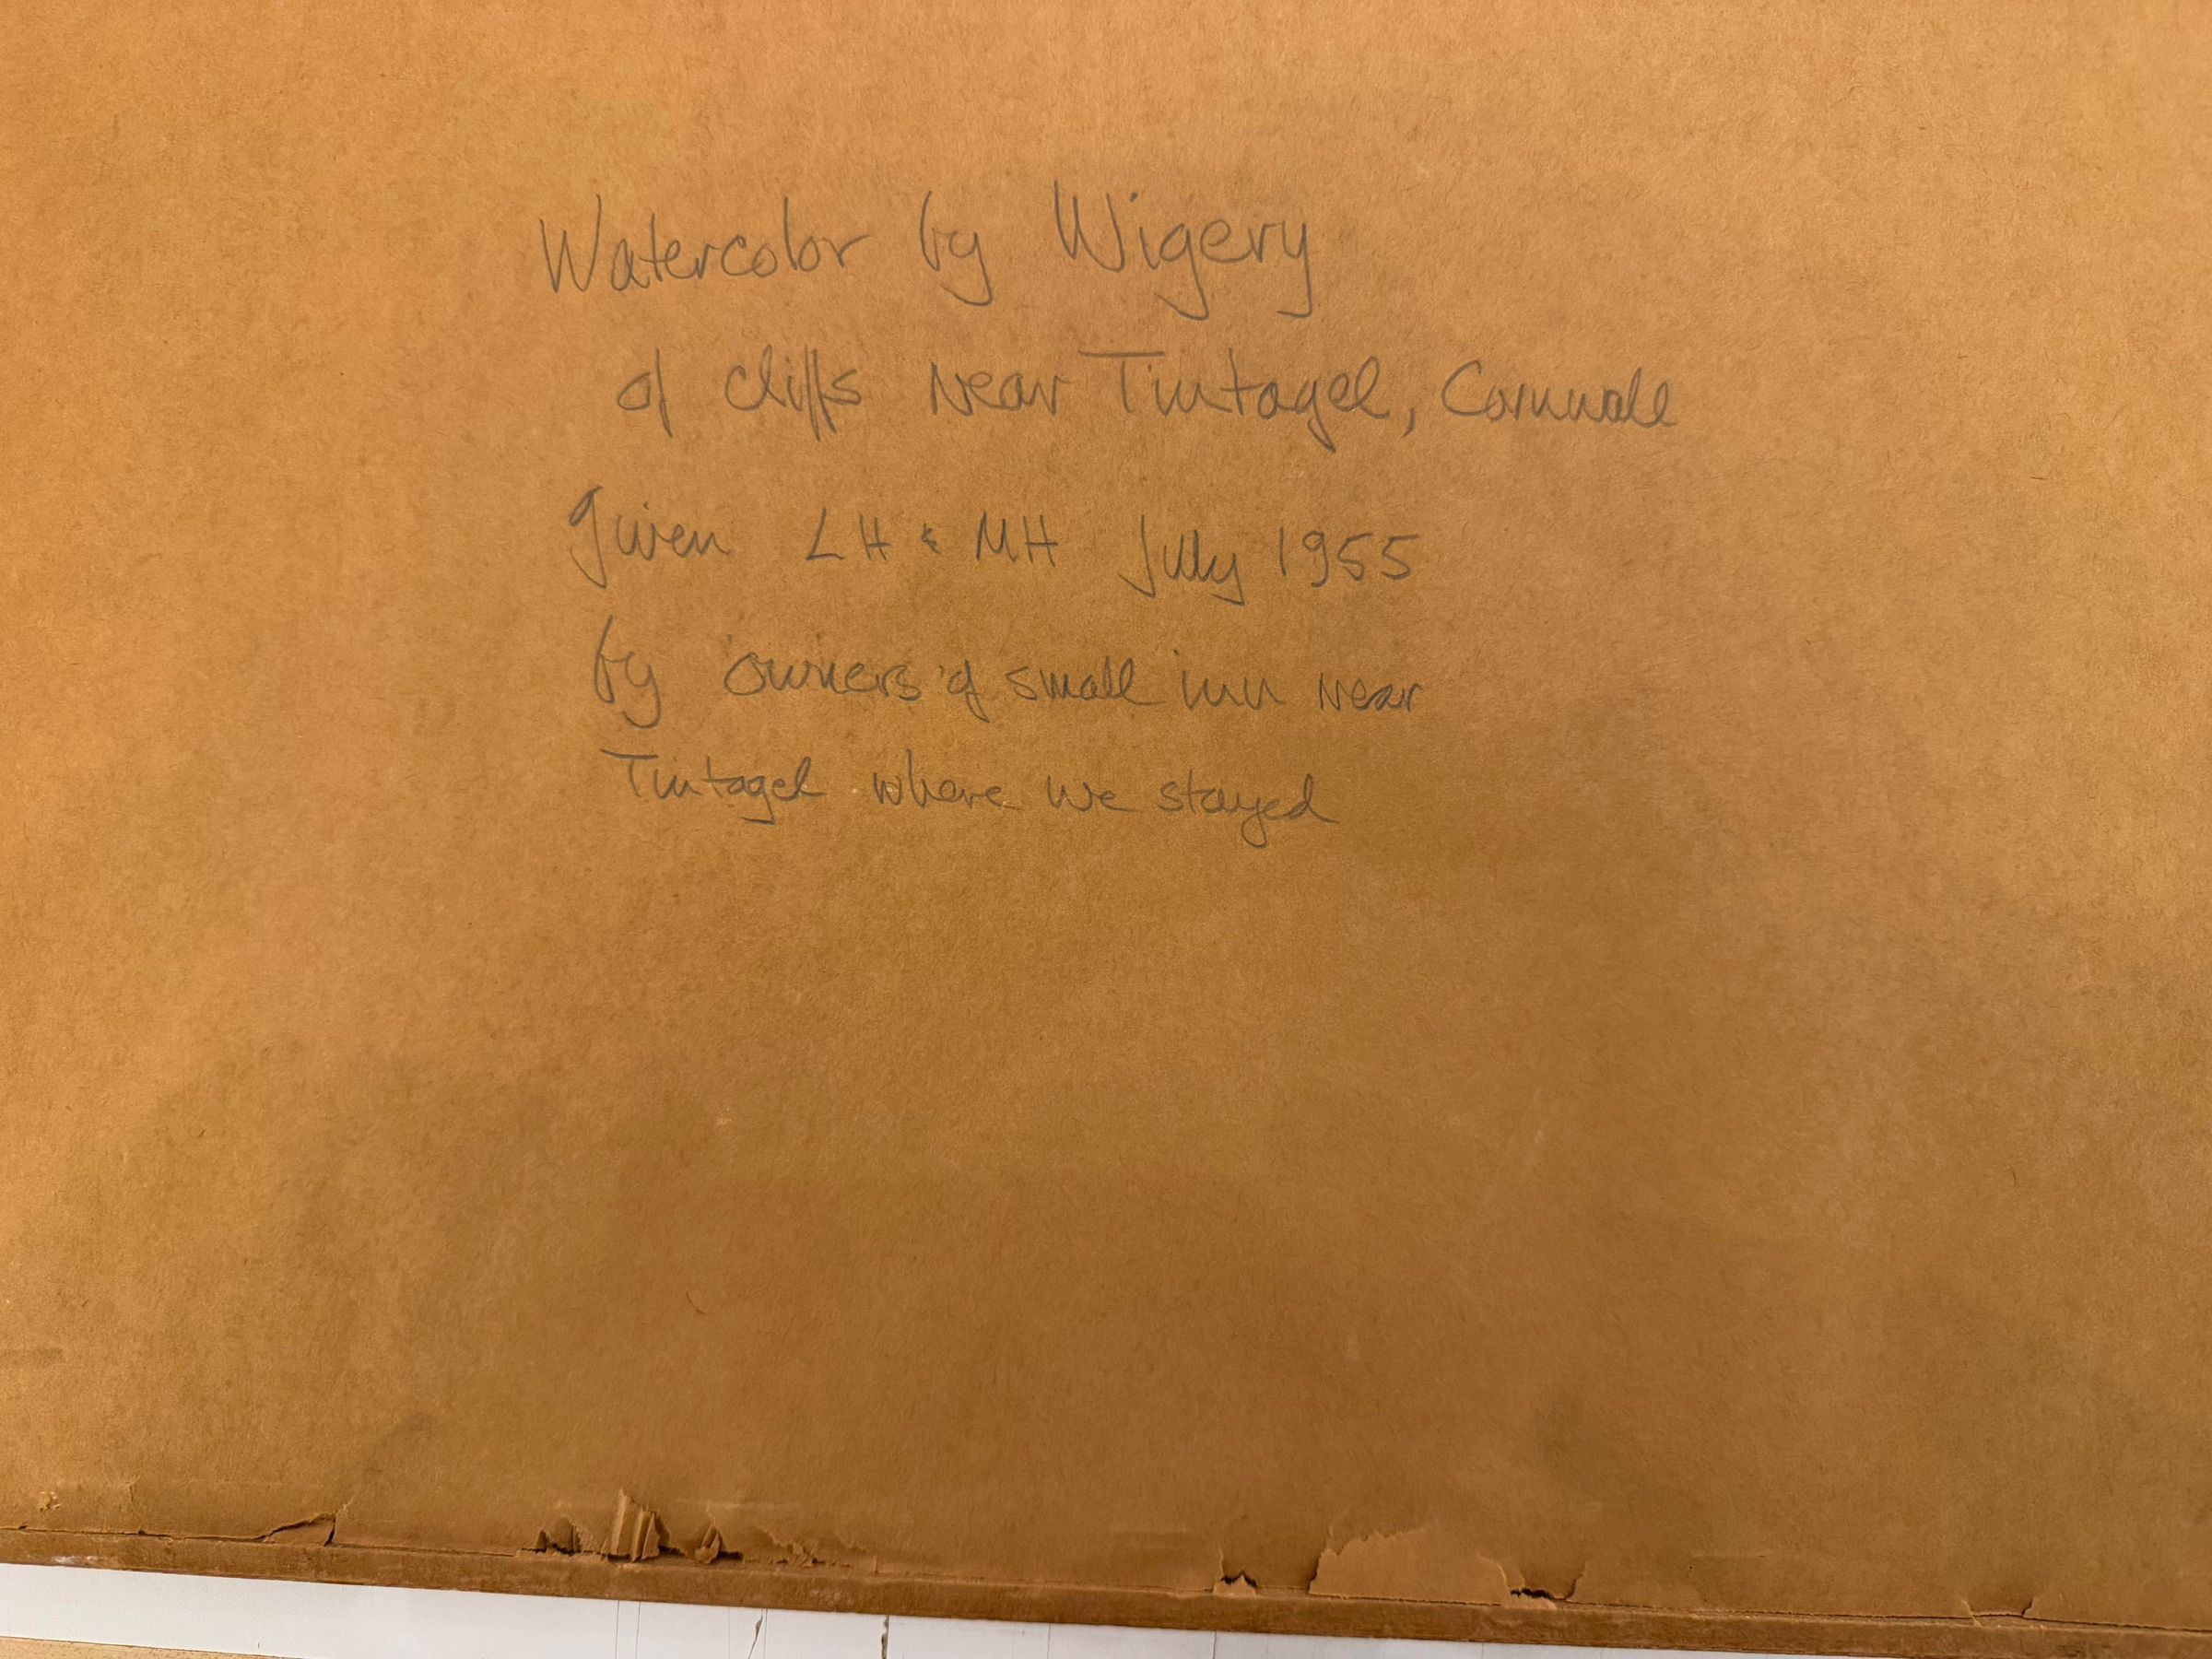 Watercolor by Wigery
of cliffs near Tintagel, Cornwall
given LH & MH July 1955
by owners of small inn near
Tintagel where we stayed